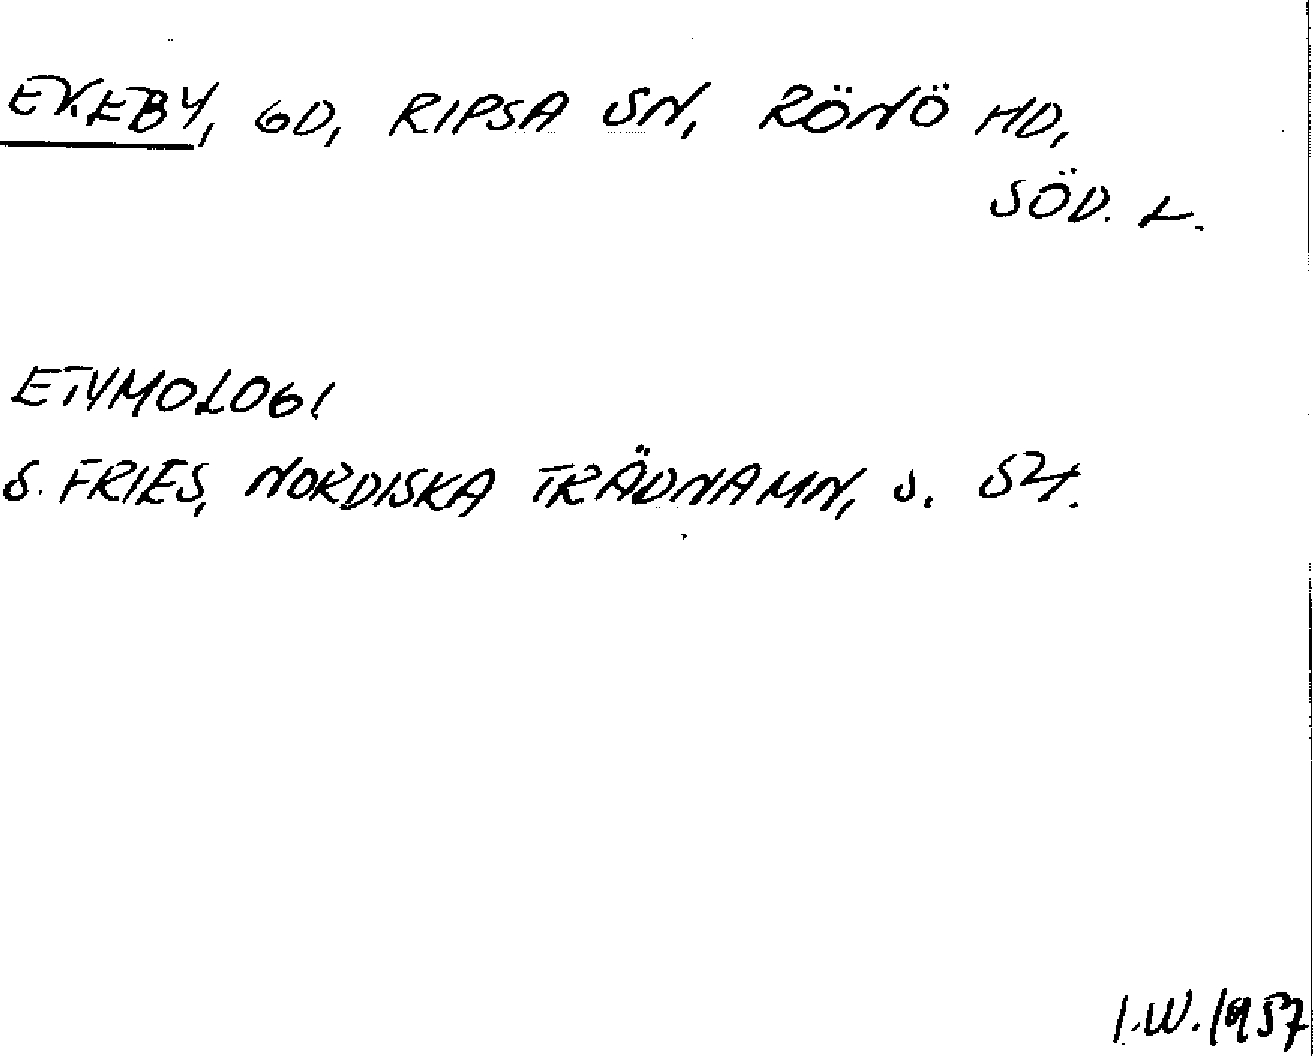 EKEBY, GD, RIPSA SN, RÖNÖ HD,
SÖD. L.
ETYMOLOGI
S. FRIES, NORDISKA TRÄDNAMN, S. 54.
I.W. 1957